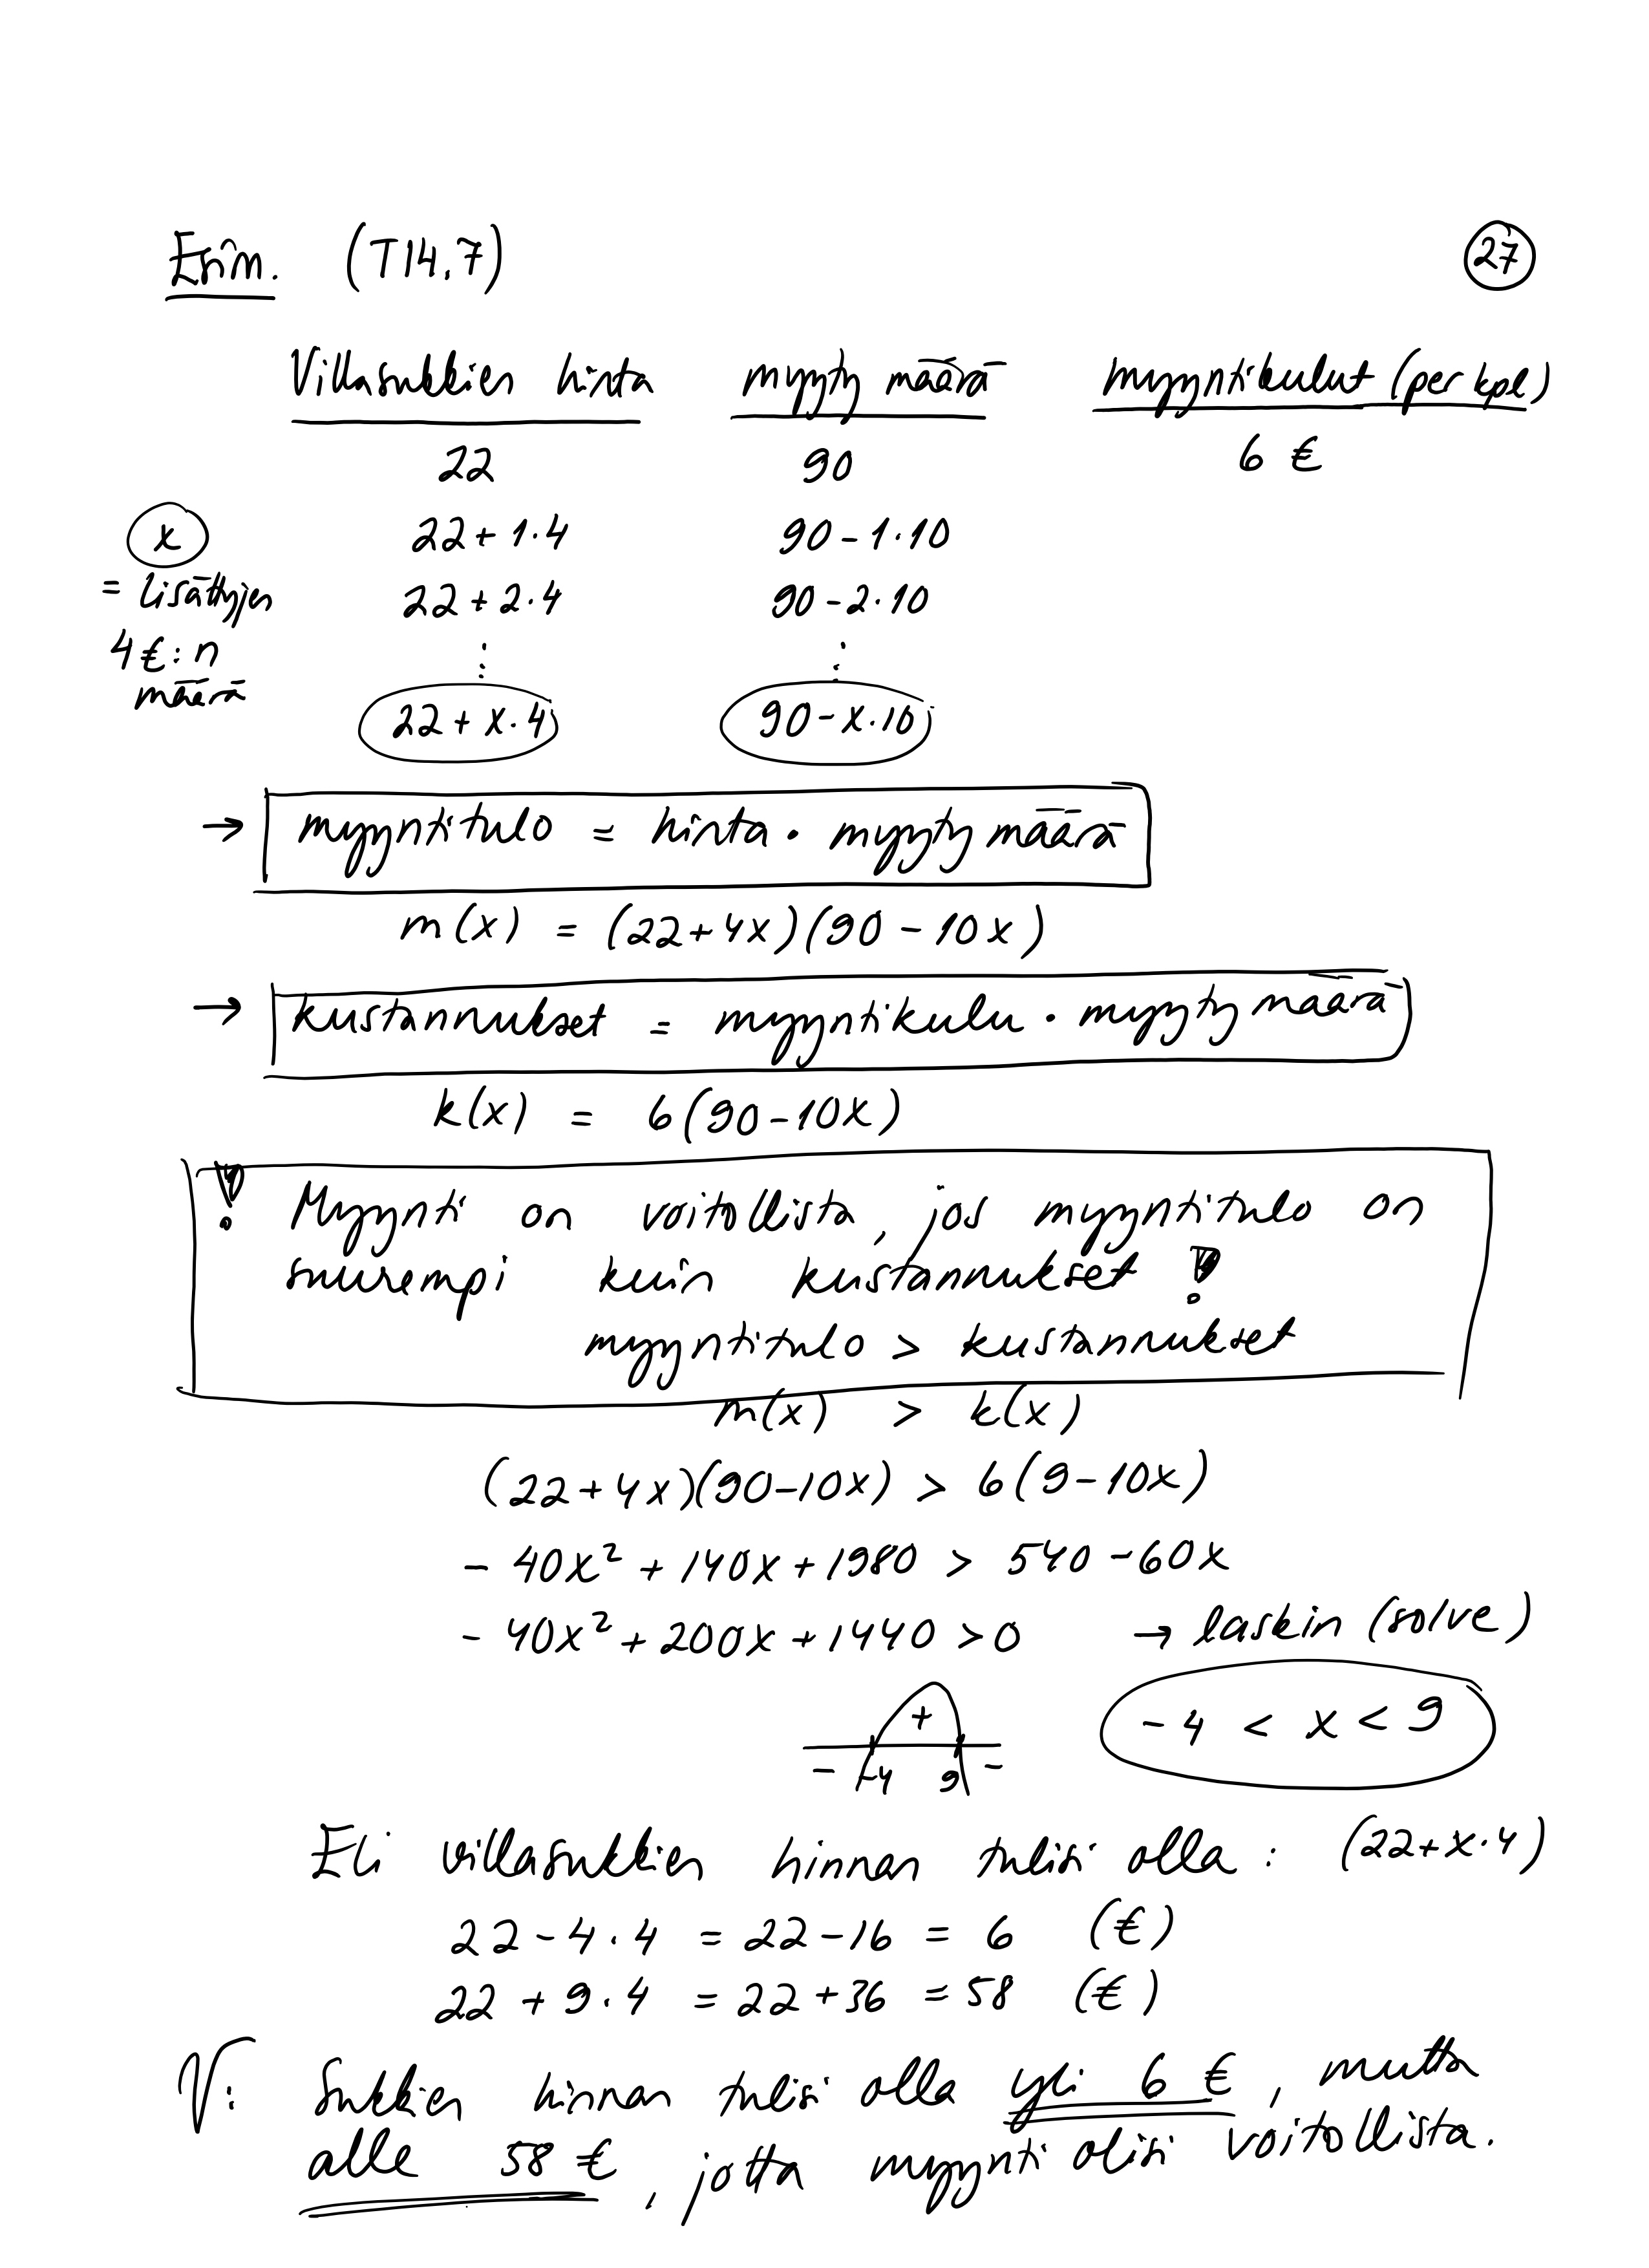 Esim. (T14.7) 27
Villasukkien hinta myyty määrä myyntikulut (per kpl)
22 90 6 €
x 22 + 1·4 90 - 1·10
= lisättyjen 22 + 2·4 90 - 2·10
4 €:n ⋮ ⋮
määrä
22 + x·4 90 - x·10
→ myyntitulo = hinta · myyty määrä
m(x) = (22+4x)(90 - 10x)
→ kustannukset = myyntikulu · myyty määrä
k(x) = 6(90-10x)
! Myynti on voitollista, jos myyntitulo on
suurempi kuin kustannukset !
myyntitulo > kustannukset
m(x) > k(x)
(22+4x)(90-10x) > 6(9-10x)
- 40x² + 140x + 1980 > 540 - 60x
- 40x² + 200x + 1440 > 0 → laskin (solve)
+ - 4 < x < 9
- -4 9 -
Eli villasukkien hinnan tulisi olla : (22+x·4)
22 - 4·4 = 22-16 = 6 (€)
22 + 9·4 = 22+36 = 58 (€)
V: Sukkien hinnan tulisi olla yli 6 €, mutta
alle 58 €, jotta myynti olisi voitollista.